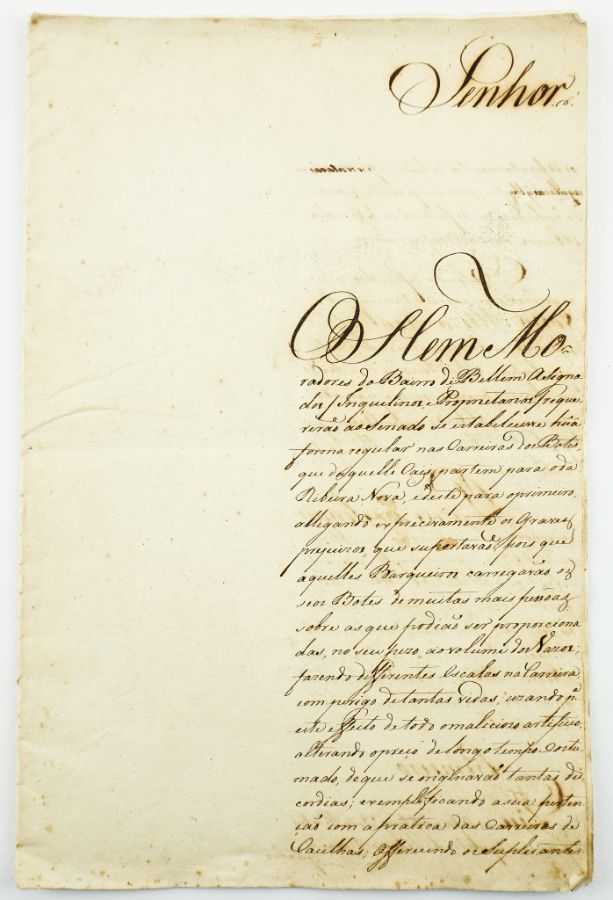 Senhor
Os Cem Mo=
radores do Bairro de Bellem Asigna
dos / Inquelinos, e Proprietarios / reque
rerão ao Senado se estabelecesse huã
forma regular nas Carreiras dos Botes,
que daquelle Caes partem para o da
Ribeira Nova, e deste para o primeiro,
allegando expreciramente os Graves
prejuizos, que suportavão pois que
aquelles Barqueiros carregavão os
seos Botes de muitas mais pessoas
sobre as que podião ser proporciona
das, no seu pezo, ao volume dos Vazos;
fazendo differentes Escalas na Carreira,
com perigo de tantas vidas; uzando pª
este effeito de todo o malicioso artificio,
alterando o preço de longo tempo costu
mado, de que se originavão tantas dis
cordias; exemplificando a sua perten
ção com a pratica das Carreiras de
Cacilhas; Offerecendo os Suplicantes